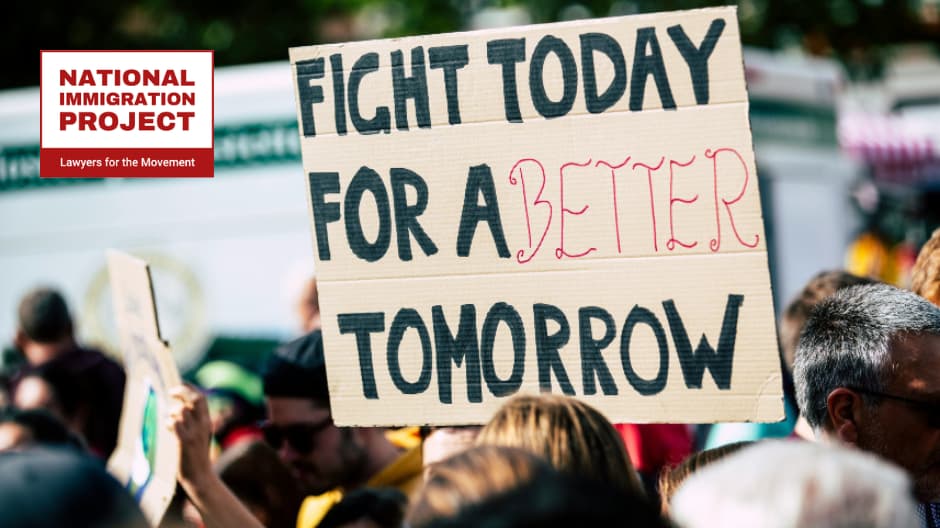 NATIONAL
IMMIGRATION
PROJECT
Lawyers for the Movement
FIGHT TODAY
FOR A BETTER
TOMORROW